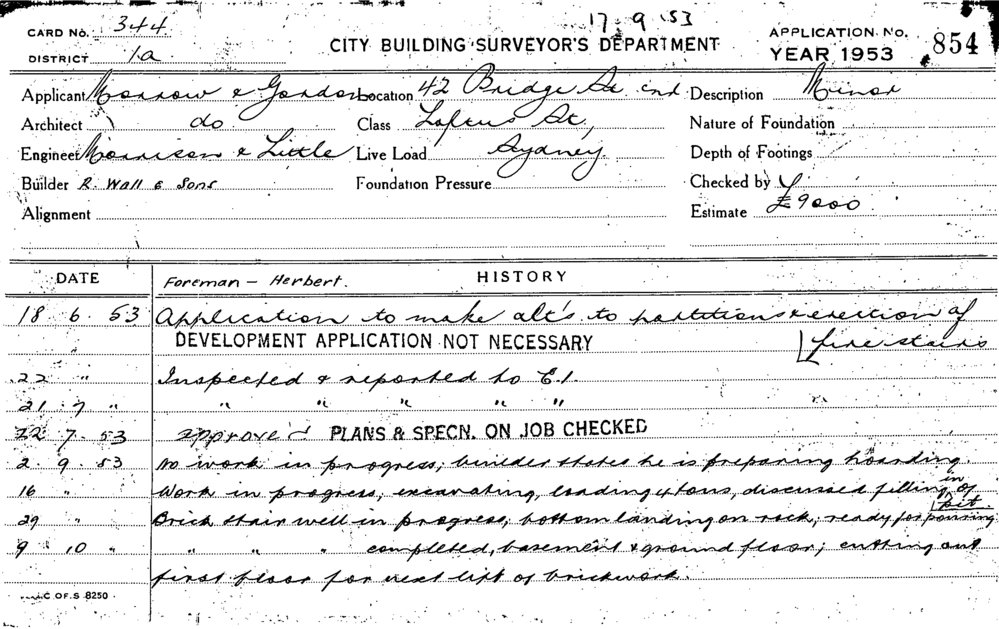 17 . 9 . 53
CARD No. 344
CITY BUILDING SURVEYOR'S DEPARTMENT
APPLICATION No. 854
DISTRICT 1a
YEAR 1953
Applicant Morrow & Gordon Location 42 Bridge St cnr Description Minor
Architect do Class Loftus St, Nature of Foundation
Engineer Morrison & Little Live Load Sydney Depth of Footings
Builder R. Wall & Sons Foundation Pressure Checked by
Alignment Estimate £9000
DATE Foreman - Herbert. HISTORY
18 . 6 . 53 Application to make alt's to partitions & erection of
DEVELOPMENT APPLICATION NOT NECESSARY [fire stairs
22 " Inspected & reported to E.I.
21 . 7 " " " " " "
22 . 7 . 53 approved PLANS & SPECN. ON JOB CHECKED
2 . 9 . 53 No work in progress; builder states he is preparing hoarding.
16 " Work in progress, excavating, loading 4 tons, discussed filling in of
29 " Brick stair well in progress, bottom landing on rock, ready for pouring [pit.
9 10 " " " " completed, basement & ground floor; cutting out
first floor for next lift of brickwork.
C. OF. S 8250